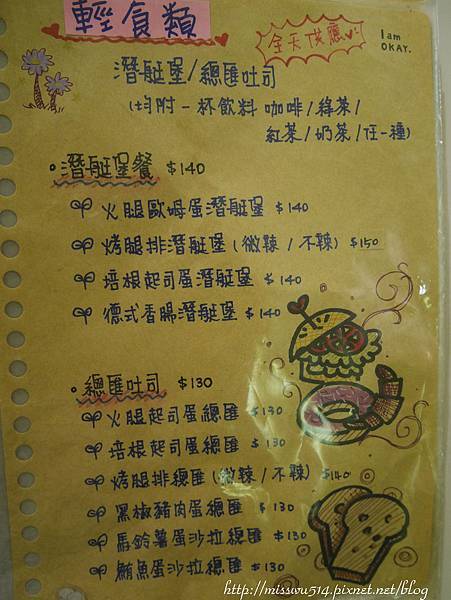 輕食類
全天供應
I am
OKAY.
潛艇堡/總匯吐司
(均附一杯飲料 咖啡/綠茶/
紅茶/奶茶/任一種)
潛艇堡餐 $140
火腿歐姆蛋潛艇堡 $140
烤腿排潛艇堡(微辣/不辣) $150
培根起司蛋潛艇堡 $140
德式香腸潛艇堡 $140
總匯吐司 $130
火腿起司蛋總匯 $130
培根起司蛋總匯 $130
烤腿排總匯(微辣/不辣) $140
黑椒豬肉蛋總匯 $130
馬鈴薯蛋沙拉總匯 $130
鮪魚蛋沙拉總匯 $130
http://missvu514.pixnet.net/blog